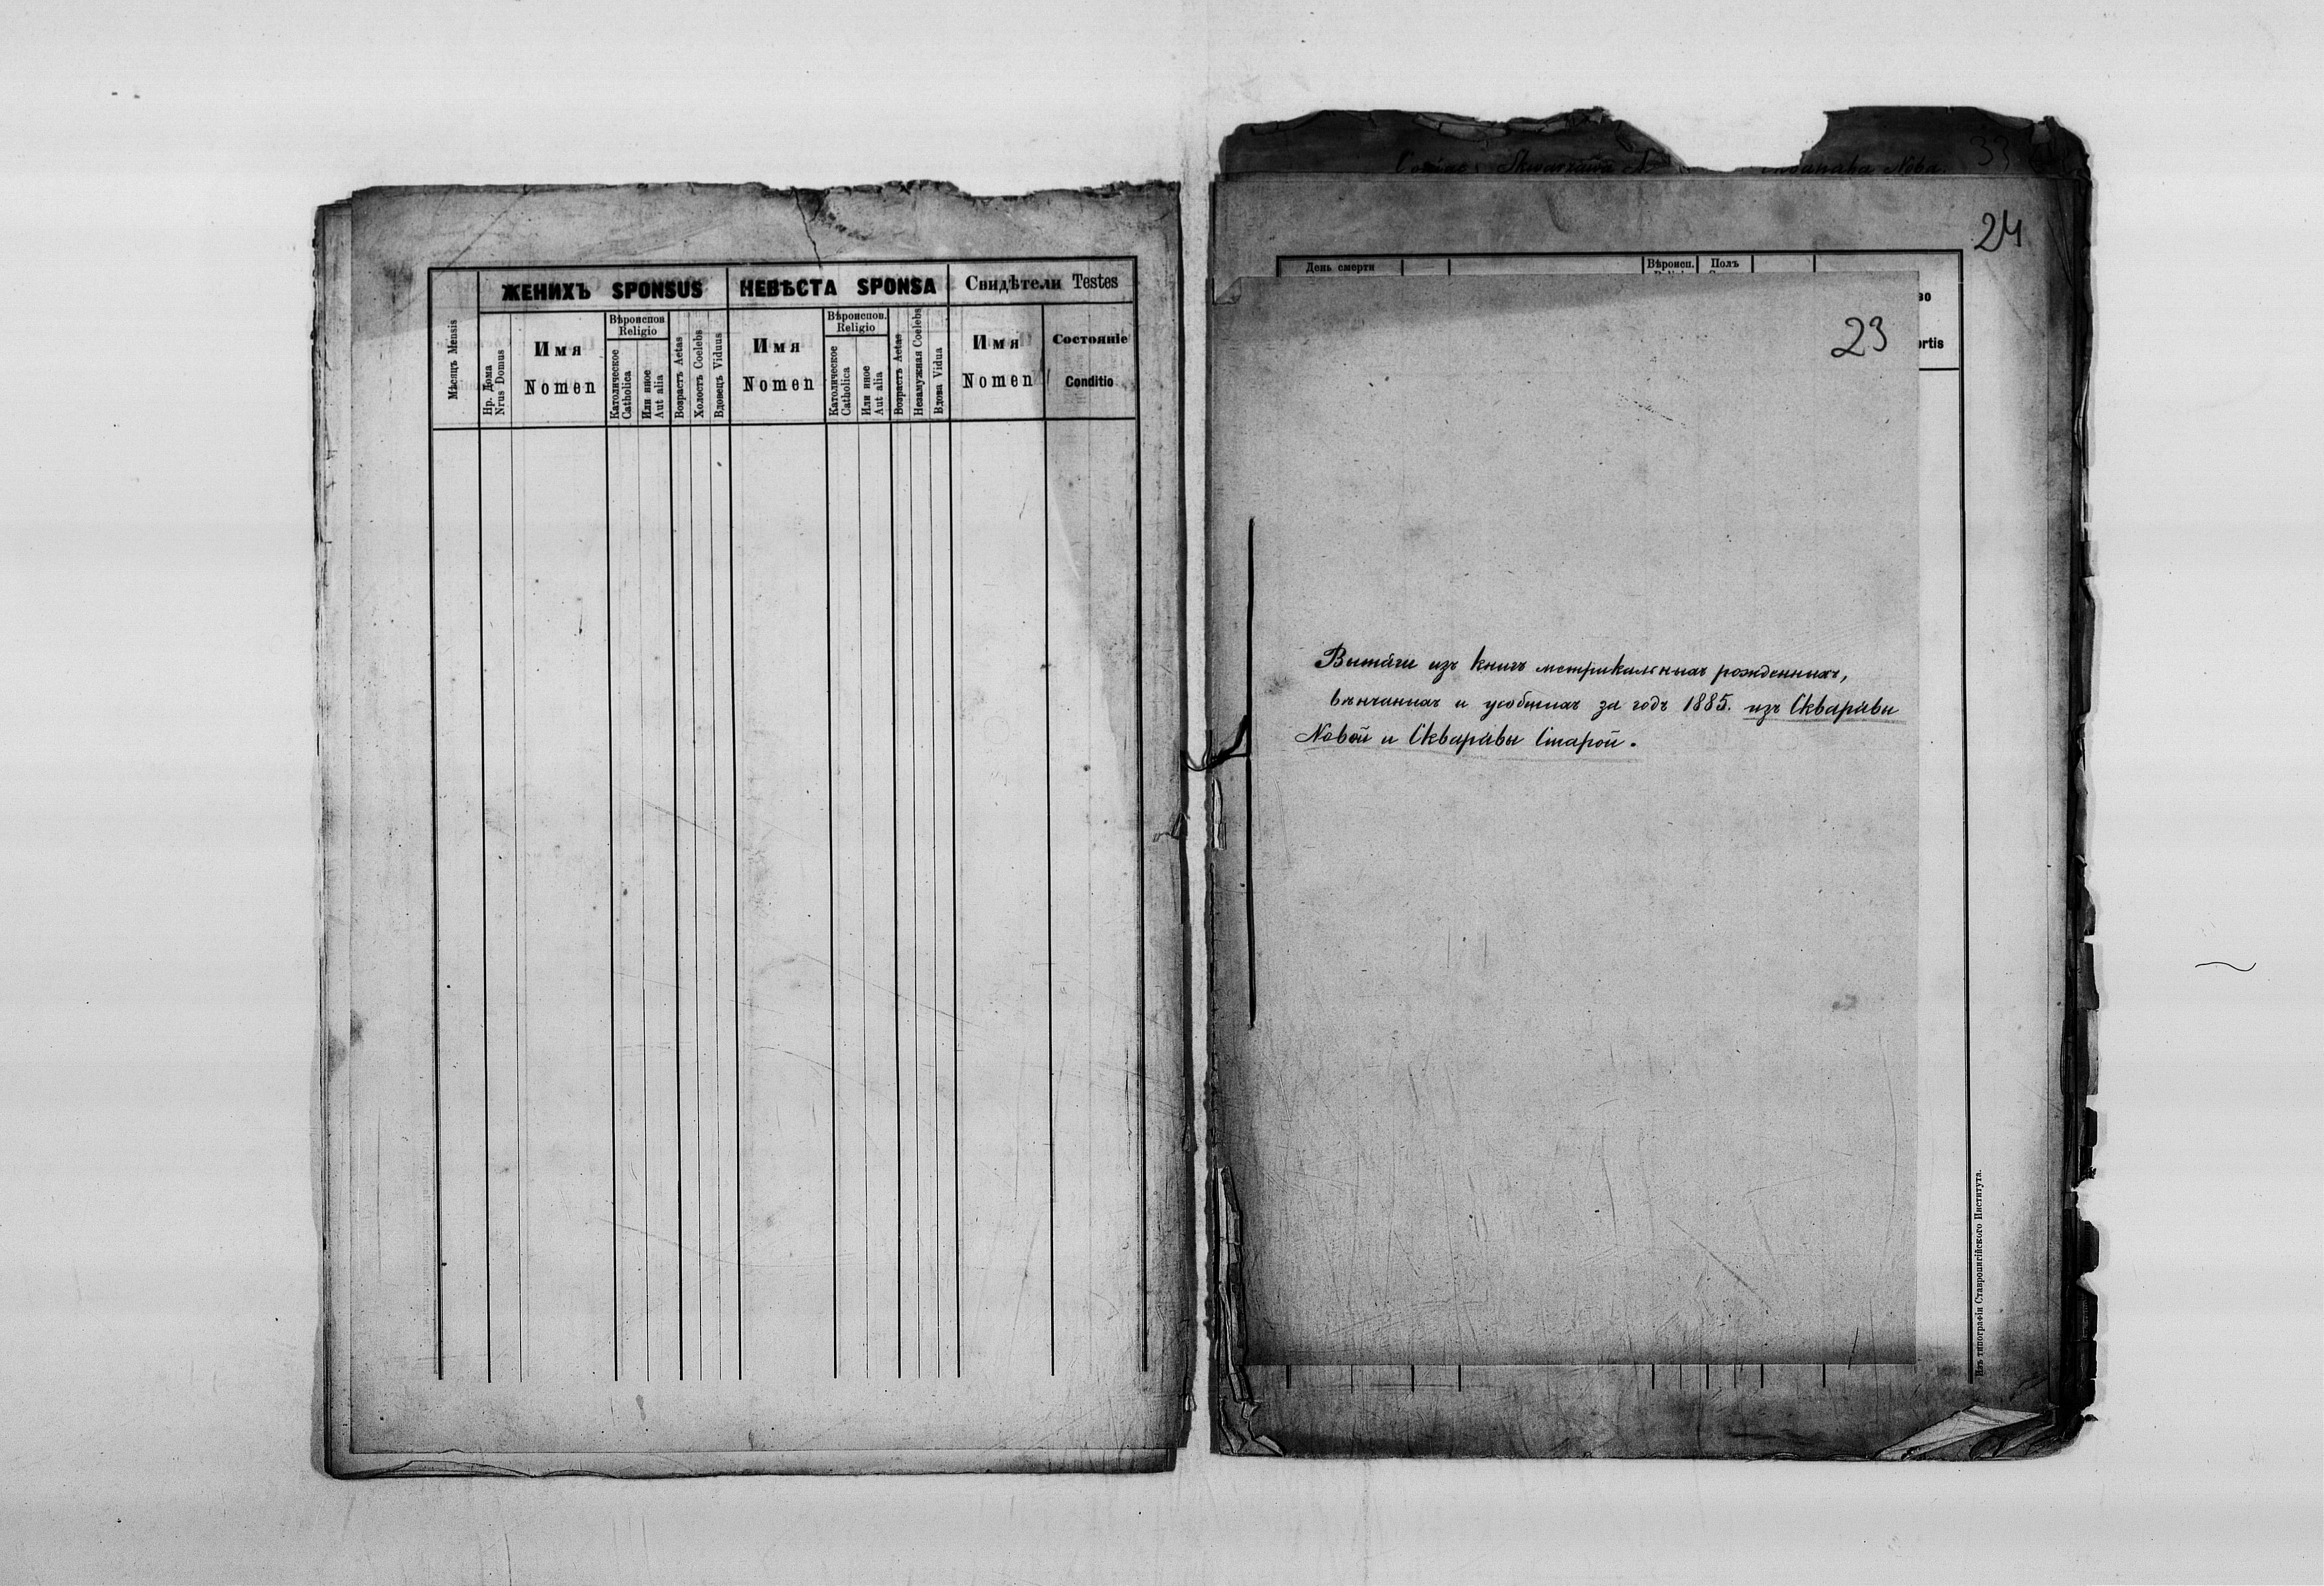 ЖЕНИХЪ SPONSUS
НЕВѢСТА SPONSA
Свидѣтели Testes
Мѣсяцъ Mensis
Нр. Дома
Nrus Domus
Имя
Nomen
Вѣроиспов.
Religio
Католическое
Catholica
Или иное
Aut alia
Возрастъ Aetas
Холостъ Coelebs
Вдовецъ Viduus
Имя
Nomen
Вѣроиспов.
Religio
Католическое
Catholica
Или иное
Aut alia
Возрастъ Aetas
Незамужная Coelebs
Вдова Vidua
Имя
Nomen
Состояніе
Conditio
33
Skwarzawa N
Nова
24
День смерти
Вѣроисп.
Полъ
во
ortis
23
Вытяги изъ книгъ метрикальныхъ рожденныхъ,
вѣнчанныхъ и усобшихъ за годъ 1885. изъ Скварявы
Новой и Скварявы Старой.
Изъ типографіи Ставропигійского Института.